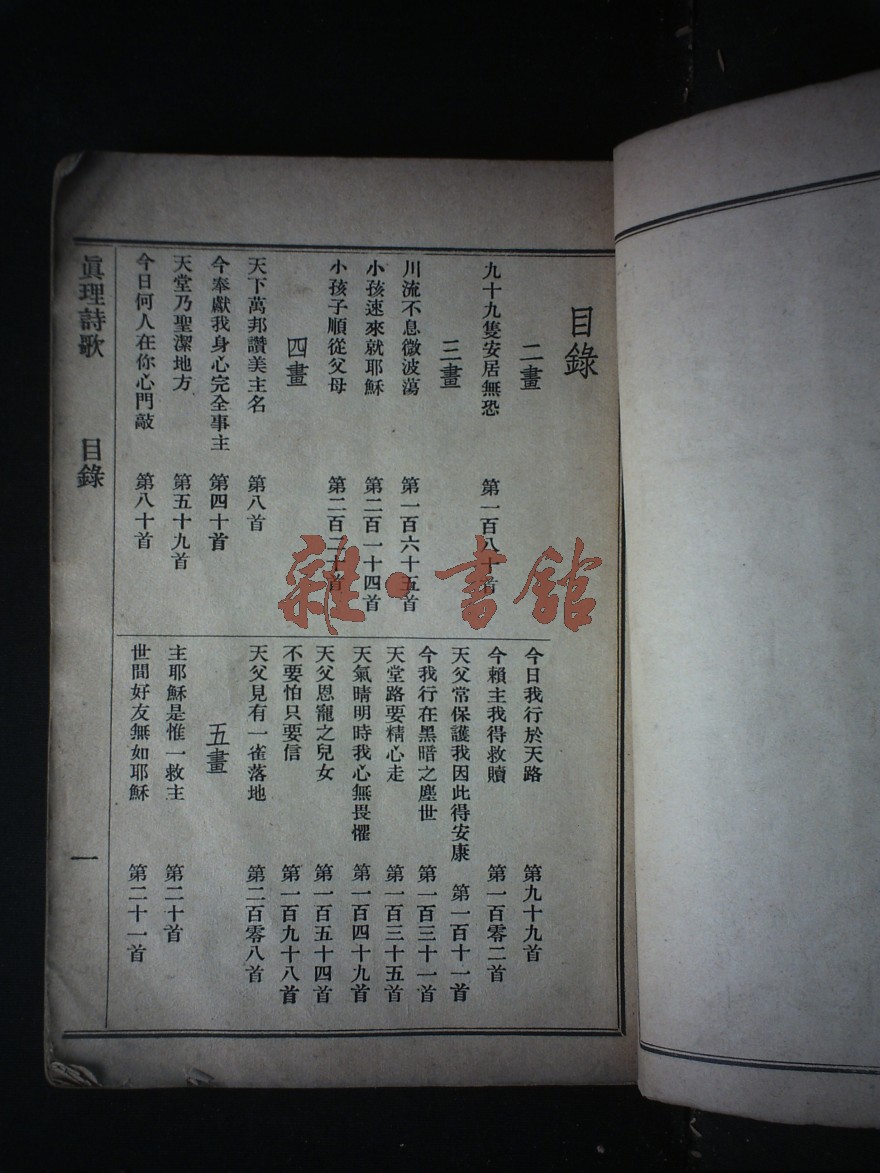 目錄
二畫
九十九隻安居無恐 第一百八十首
三畫
川流不息微波蕩 第一百六十五首
小孩速來就耶穌 第二百一十四首
小孩子順從父母 第二百二十首
四畫
天下萬邦讚美主名 第八首
今奉獻我身心完全事主 第四十首
天堂乃聖潔地方 第五十九首
今日何人在你心門敲 第八十首
今日我行於天路 第九十九首
今賴主我得救贖 第一百零二首
天父常保護我因此得安康 第一百十一首
今我行在黑暗之塵世 第一百三十一首
天堂路要精心走 第一百三十五首
天氣晴明時我心無畏懼 第一百四十九首
天父恩寵之兒女 第一百五十四首
不要怕只要信 第一百九十八首
天父見有一雀落地 第二百零八首
五畫
主耶穌是惟一救主 第二十首
世間好友無如耶穌 第二十一首
眞理詩歌 目錄 一
雜·書館